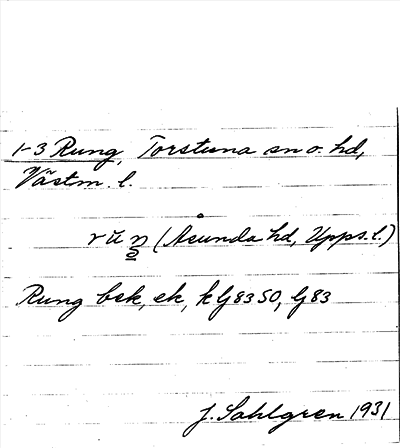 1-3 Rung, Torstuna sn o. hd,
Västm. l.
rŭŋ (Åsunda hd, Upps. l.)
Rung bsk, ek, klj 83 SO, lj 83
J. Sahlgren 1931